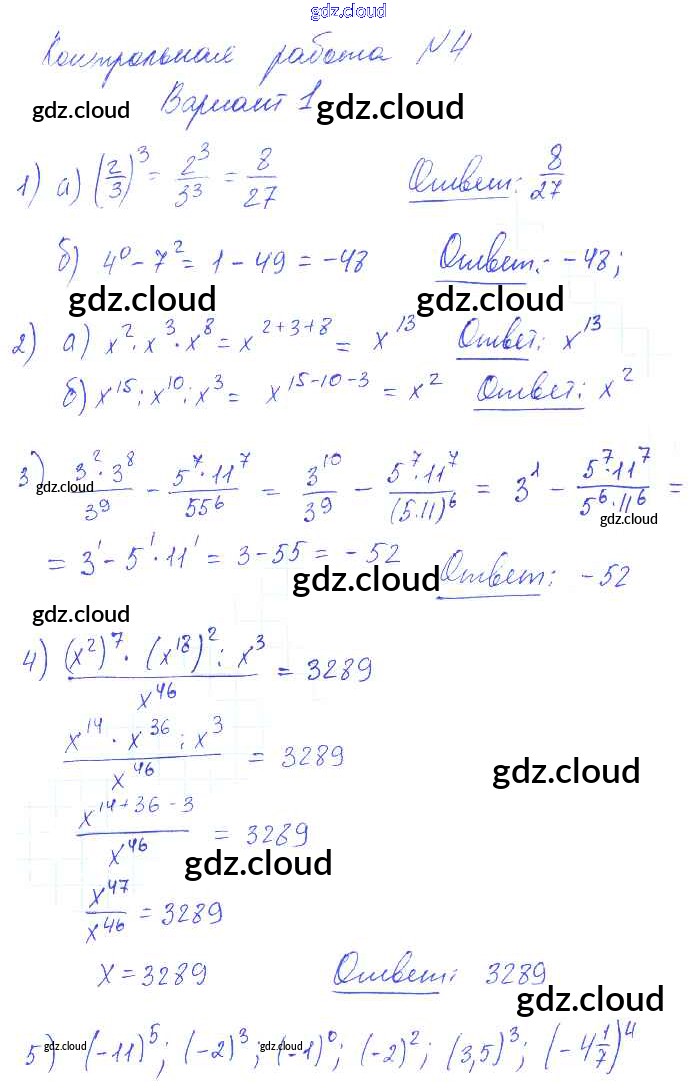 gdz.cloud
Контрольная работа №4
gdz.cloud Вариант 1 gdz.cloud
1) а) (2/3)^3 = 2^3/3^3 = 8/27 Ответ: 8/27
б) 4^0 - 7^2 = 1 - 49 = -48 Ответ: -48;
gdz.cloud gdz.cloud
2) а) x^2 · x^3 · x^8 = x^(2+3+8) = x^13 Ответ: x^13
б) x^15 : x^10 : x^3 = x^(15-10-3) = x^2 Ответ: x^2
3) (3^2 · 3^8)/3^9 - (5^7 · 11^7)/55^6 = 3^10/3^9 - (5^7 · 11^7)/(5·11)^6 = 3^1 - (5^7 · 11^7)/(5^6 · 11^6) =
gdz.cloud gdz.cloud
= 3^1 - 5^1 · 11^1 = 3 - 55 = -52 Ответ: -52
gdz.cloud
gdz.cloud
4) ((x^2)^7 · (x^18)^2 : x^3)/x^46 = 3289
(x^14 · x^36 : x^3)/x^46 = 3289
gdz.cloud
x^(14+36-3)/x^46 = 3289
gdz.cloud
x^47/x^46 = 3289
x = 3289 Ответ: 3289
gdz.cloud
5) (-11)^5; (-2)^3; (-1)^0; (-2)^2; (3,5)^3; (-4 1/7)^4
gdz.cloud gdz.cloud gdz.cloud